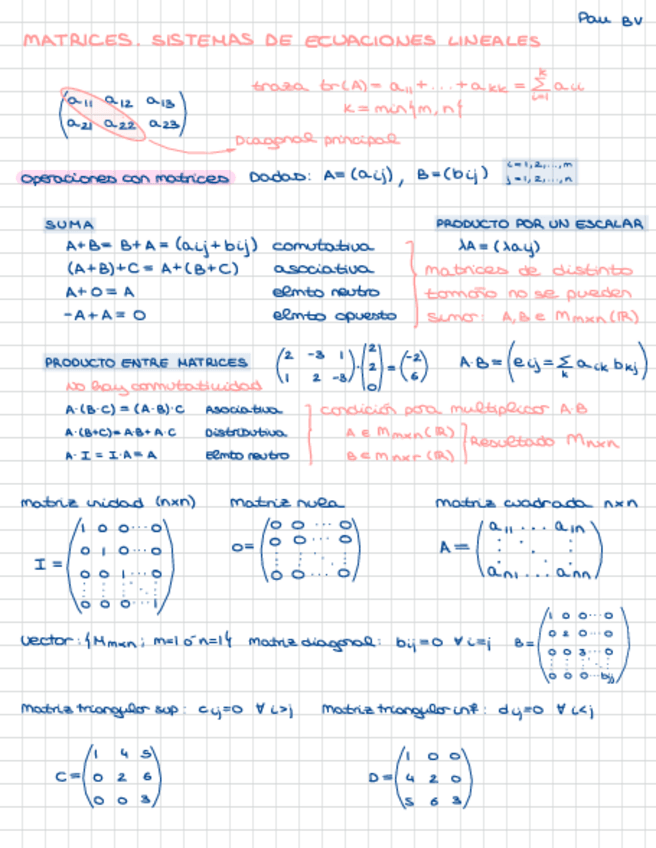 Pau BV
MATRICES. SISTEMAS DE ECUACIONES LINEALES
(a11 a12 a13
a21 a22 a23)
traza tr(A) = a11 + ... + akk = Σ_{i=1}^{k} aii
k = min{m, n}
Diagonal principal
operaciones con matrices Dadas: A=(aij), B=(bij) i=1,2,...,m
j=1,2,...,n
SUMA
A+B = B+A = (aij+bij) comutativa
(A+B)+C = A+(B+C) asociativa
A+O = A elmto neutro
-A+A = O elmto opuesto
PRODUCTO POR UN ESCALAR
λA = (λaij)
matrices de distinto
tamaño no se pueden
sumar: A,B ∈ Mmxn(R)
PRODUCTO ENTRE MATRICES
No hay conmutatividad
(2 -3 1
1 2 -3) · (2
2
0) = (-2
6)
A·B = (eij = Σ_k aik bkj)
A·(B·C) = (A·B)·C Asociativa
A·(B+C) = A·B + A·C Distributiva
A·I = I·A = A Elmto neutro
condición para multiplicar A·B
A ∈ Mmxn(R)
B ∈ Mnxr(R)
Resultado Mnxn
matriz unidad (nxn)
I = (1 0 0 ... 0
0 1 0 ... 0
0 0 1 ... 0
0 0 0 ... 1)
matriz nula
O = (0 0 ... 0
0 0 ... 0
0 0 ... 0)
matriz cuadrada nxn
A = (a11 ... a1n
an1 ... ann)
vector: {Mmxn; m=1 ó n=1} matriz diagonal: bij=0 ∀ i=j
B = (1 0 0 ... 0
0 2 0 ... 0
0 0 3 ... 0
0 0 0 ... bij)
Matriz triangular sup: cij=0 ∀ i>j Matriz triangular inf: dij=0 ∀ i<j
C = (1 4 5
0 2 6
0 0 3)
D = (1 0 0
4 2 0
5 6 3)